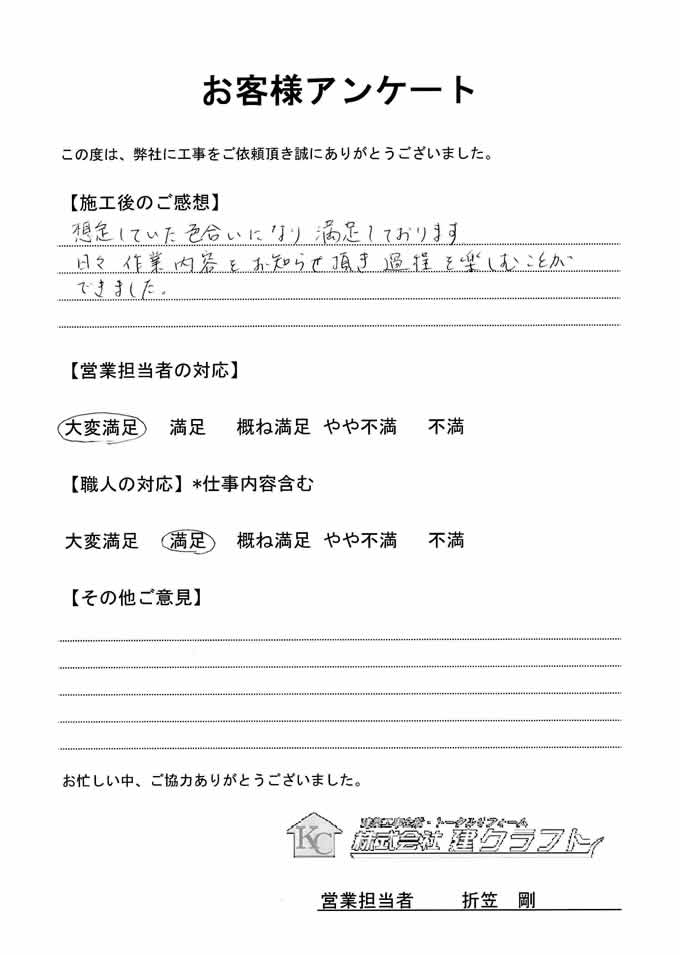 お客様アンケート
この度は、弊社に工事をご依頼頂き誠にありがとうございました。
【施工後のご感想】
想定していた色合いになり 満足しております
日々 作業内容をお知らせ頂き 過程を楽しむことが
できました。
【営業担当者の対応】
大変満足 満足 概ね満足 やや不満 不満
【職人の対応】*仕事内容含む
大変満足 満足 概ね満足 やや不満 不満
【その他ご意見】
お忙しい中、ご協力ありがとうございました。
KC
・トータルリフォーム
株式会社 建クラフト
営業担当者 折笠 剛